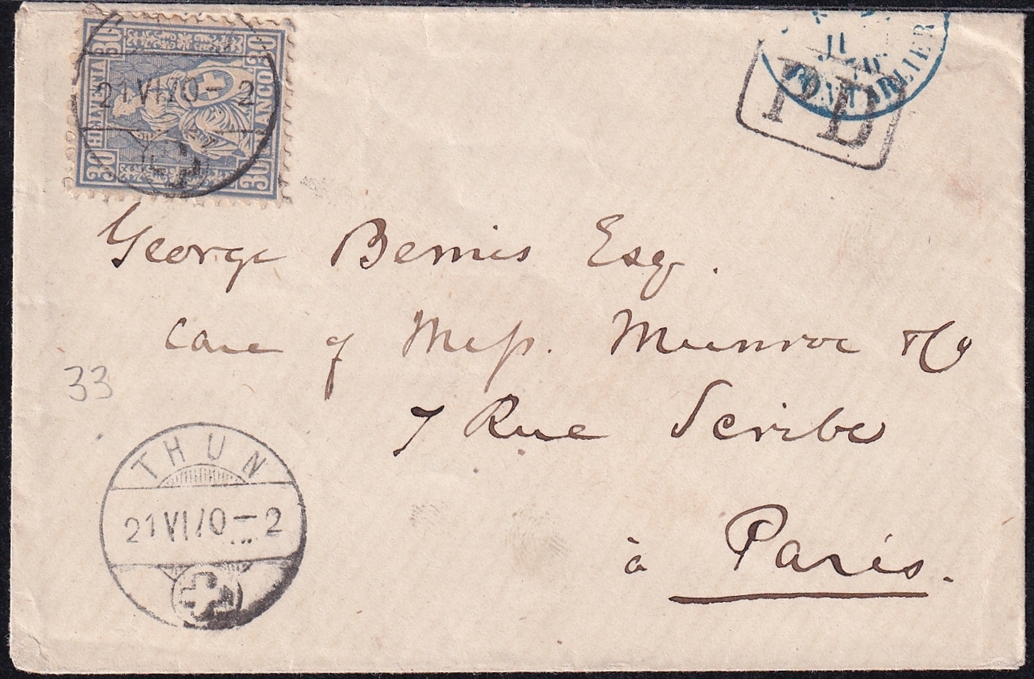 HELVETIA
FRANCO
30
30
30
30
21 VI 70 – 2
PONTARLIER
PD
George Bemis Esq.
Care of Mess. Munroe & Co
7 Rue Scribe
à Paris.
33
THUN
21 VI 70 – 2